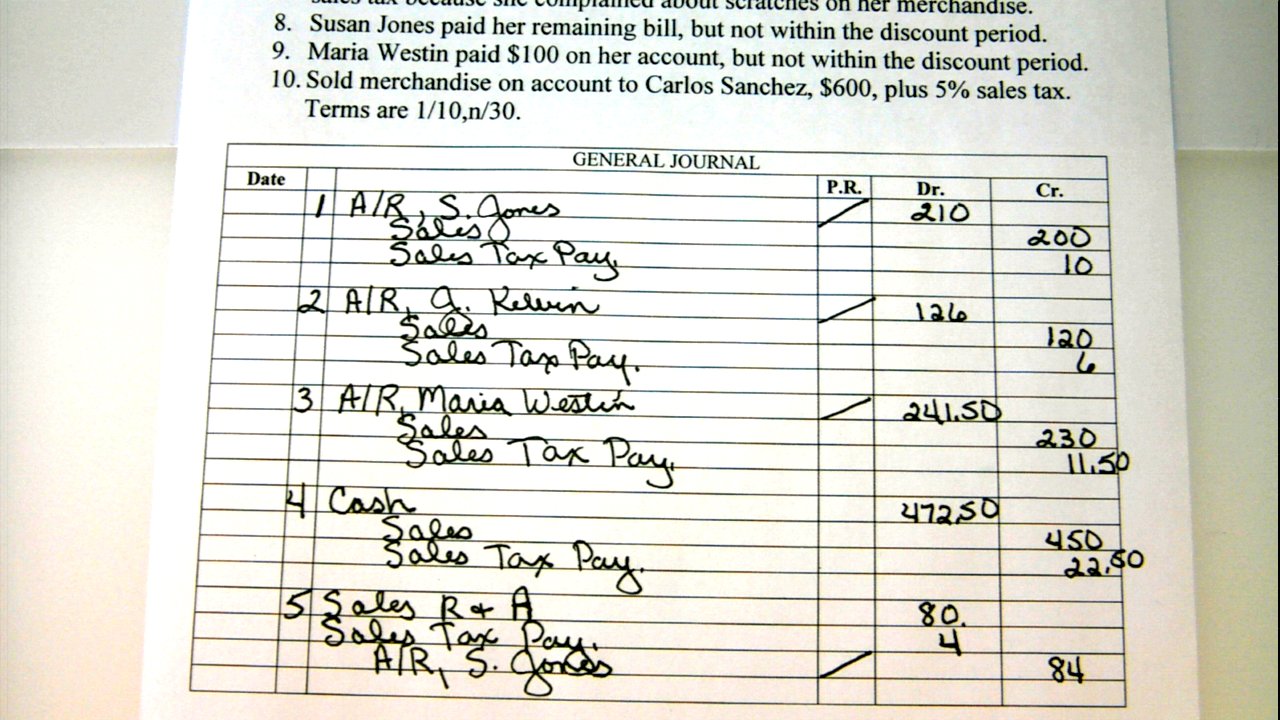 sales tax because she complained about scratches on her merchandise.
8. Susan Jones paid her remaining bill, but not within the discount period.
9. Maria Westin paid $100 on her account, but not within the discount period.
10. Sold merchandise on account to Carlos Sanchez, $600, plus 5% sales tax.
Terms are 1/10,n/30.
GENERAL JOURNAL
Date P.R. Dr. Cr.
1 A/R, S. Jones 210
Sales 200
Sales Tax Pay. 10
2 A/R, A. Kelvin 126
Sales 120
Sales Tax Pay. 6
3 A/R, Maria Westin 241.50
Sales 230
Sales Tax Pay. 11.50
4 Cash 472.50
Sales 450
Sales Tax Pay. 22.50
5 Sales R & A 80.
Sales Tax Pay. 4
A/R, S. Jones 84